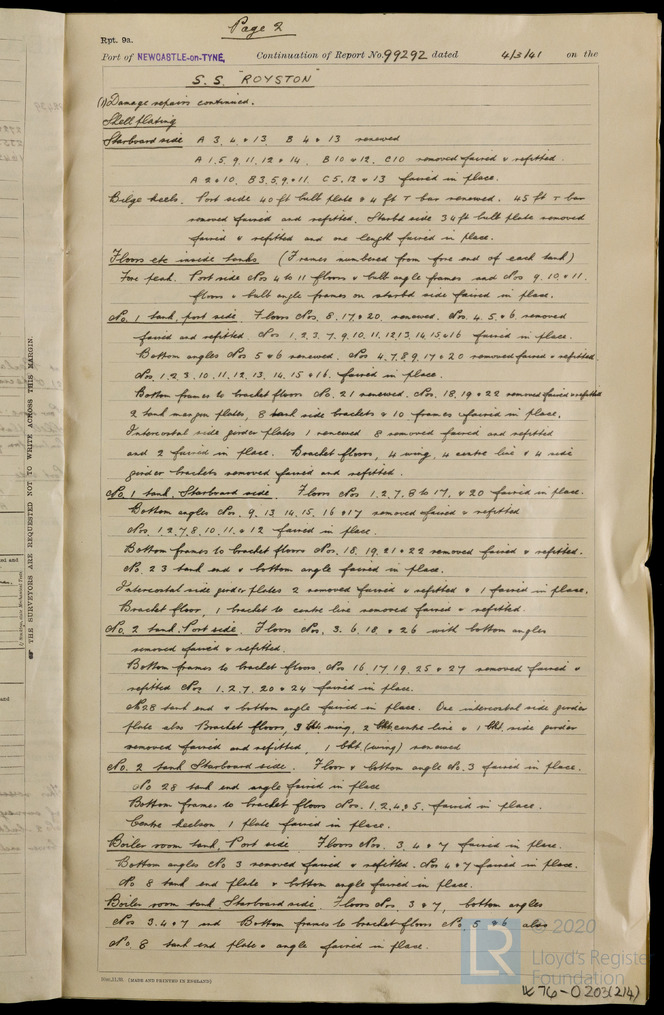 Page 2
Rpt. 9a.
Port of NEWCASTLE-on-TYNE, Continuation of Report No. 99292 dated 4/3/41 on the
S.S. "ROYSTON"
(1) Damage repairs continued.
Shell plating
Starboard side A 3, 4 & 13 B 4 & 13 renewed
A 1. 5. 9, 11, 12 & 14. B 10 & 12. C 10 removed faired & refitted.
A 2 & 10. B 3. 5, 9 & 11 C 5, 12 & 13 faired in place.
Bilge keels. Port side 40 ft bulb plate & 4 ft T bar renewed. 45 ft T bar
removed faired and refitted. Starbd side 34 ft bulb plate removed
faired & refitted and one length faired in place.
Floors etc inside tanks (Frames numbered from fore end of each tank)
Fore peak. Port side Nos 4 to 11 floors & bulb angle frames and Nos 9. 10. & 11.
floors & bulb angle frames on starbd side faired in place.
No. 1 tank, port side. Floors Nos. 8, 17 & 20 renewed. Nos. 4. 5. & 6 removed
faired and refitted. Nos 1. 2. 3. 7. 9. 10. 11. 12. 13. 14. 15 & 16 faired in place.
Bottom angles Nos 5 & 6 renewed. Nos 4, 7, 8, 9, 17 & 20 removed faired & refitted.
Nos. 1. 2. 3. 10. 11. 12, 13, 14, 15 & 16. faired in place.
Bottom frames to bracket floors No. 21 renewed. Nos. 18, 19 & 22 removed faired & refitted
2 tank margin plates, 8 tank side brackets & 10 frames faired in place.
Intercostal side girder plates 1 renewed 8 removed faired and refitted
and 2 faired in place. Bracket floors, 4 wing, 4 centre line & 4 side
girder brackets removed faired and refitted.
No. 1 tank, Starboard side. Floors Nos 1. 2. 7. 8 to 17, & 20 faired in place.
Bottom angles Nos. 9. 13. 14. 15, 16 & 17 removed faired & refitted
Nos. 1. 2. 7, 8, 10, 11. & 12 faired in place.
Bottom frames to bracket floors Nos. 18. 19. 21 & 22 removed faired & refitted.
No. 23 tank end & bottom angle faired in place.
Intercostal side girder plates 2 removed faired & refitted & 1 faired in place.
Bracket floor, 1 bracket to centre line removed faired & refitted.
No. 2 tank. Port side. Floors Nos. 3. 6. 18. & 26 with bottom angles
removed faired & refitted.
Bottom frames to bracket floors, Nos 16 17, 19, 25 & 27 removed faired &
refitted Nos 1. 2. 7. 20 & 24 faired in place.
No 28 tank end & bottom angle faired in place. One intercostal side girder
plate also Bracket floors, 3 bkt. wing, 2 bkt. centre line & 1 bkt. side girder
removed faired and refitted, 1 bkt. (wing) renewed
No. 2 tank Starboard side. Floor & bottom angle No. 3 faired in place.
No 28 tank end angle faired in place
Bottom frames to bracket floors Nos. 1. 2. 4. & 5. faired in place.
Centre keelson 1 plate faired in place.
Boiler room tank, Port side Floors Nos. 3, 4 & 7 faired in place.
Bottom angles No 3 removed faired & refitted. Nos 4 & 7 faired in place.
No 8 tank end plate & bottom angle faired in place.
Boiler room tank, Starboard side. Floors Nos. 3 & 7, bottom angles
Nos 3. 4 & 7 and Bottom frames to bracket floors No. 5 & 6 also
No. 8 tank end plate & angle faired in place.
(MADE AND PRINTED IN ENGLAND)
☞ THE SURVEYORS ARE REQUESTED NOT TO WRITE ACROSS THIS MARGIN.
LR
© 2020
Lloyd's Register
Foundation
W76-0203(2/4)